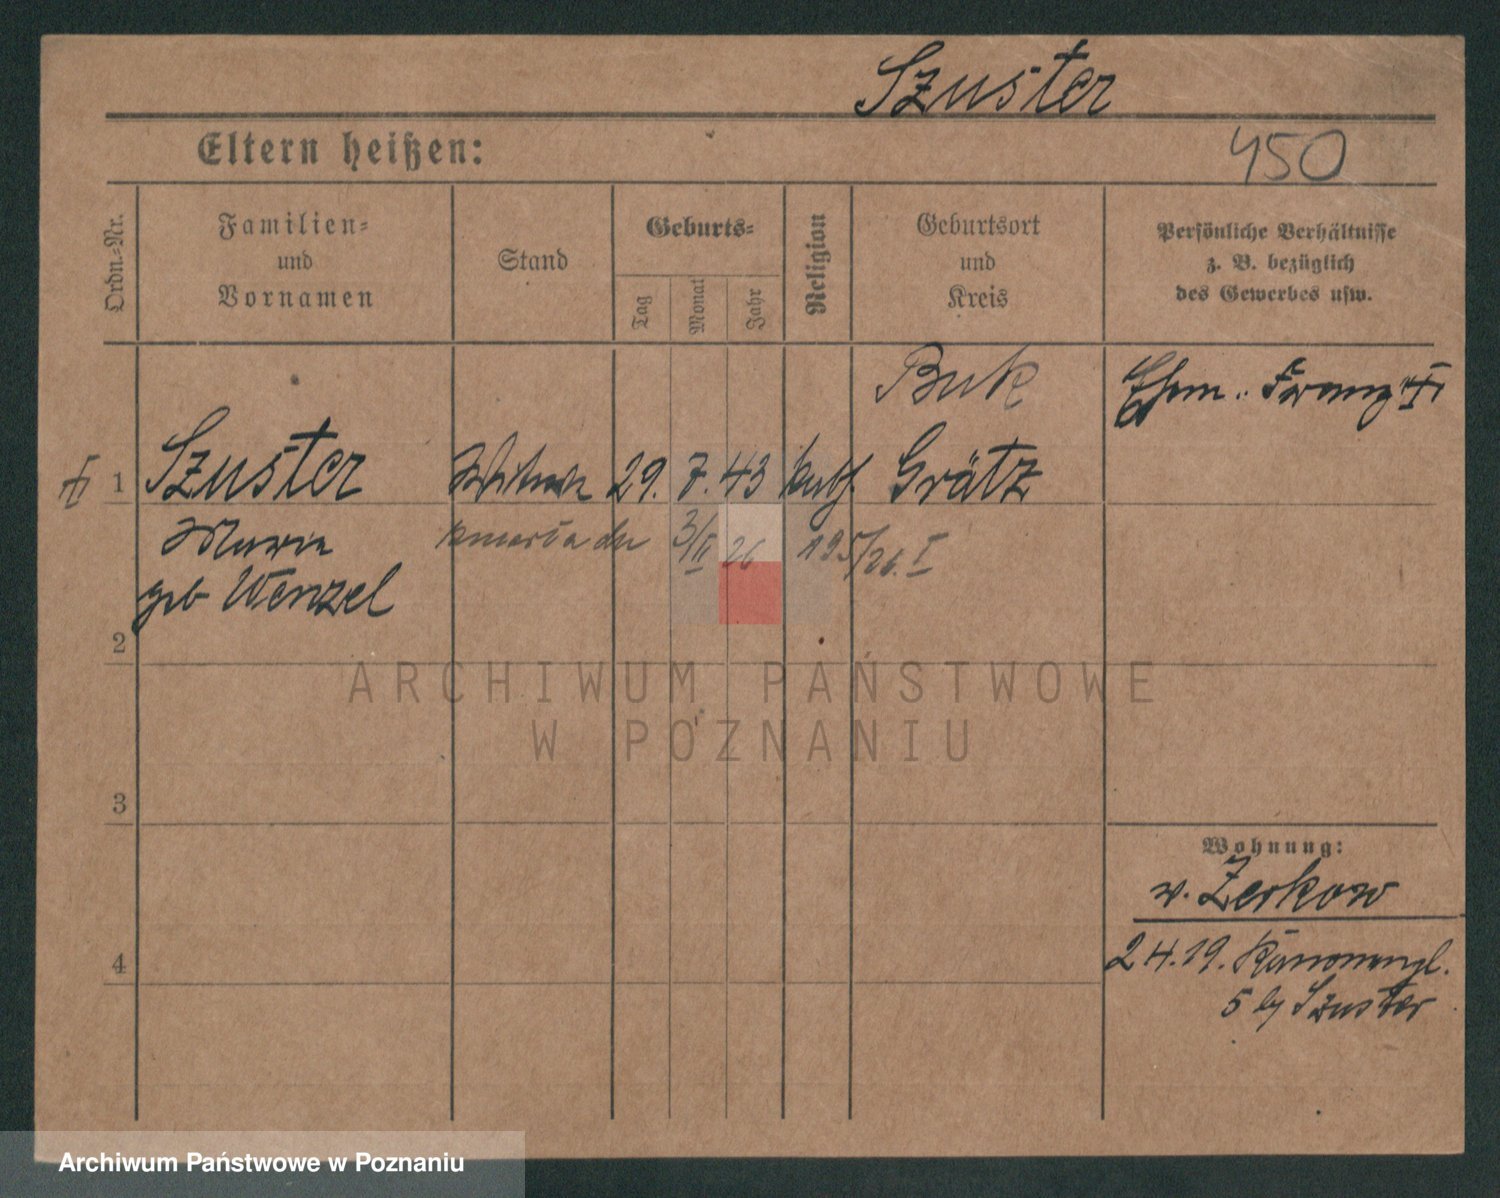 Szuster
Eltern heißen:
450
Ordn.-Nr.
Familien-
und
Vornamen
Stand
Geburts-
Tag
Monat
Jahr
Religion
Geburtsort
und
Kreis
Persönliche Verhältnisse
z. B. bezüglich
des Gewerbes usw.
Buk
Ehem. Franz †
† 1 Szuster Witwe 29. 7. 43 kath. Grätz
Marie zmarła dn 3/II 26 195/26. I
geb Wenzel
2
ARCHIWUM PAŃSTWOWE
W POZNANIU
3
Wohnung:
v. Zerkow
4
2 4. 19.
5 bj Szuster
Archiwum Państwowe w Poznaniu